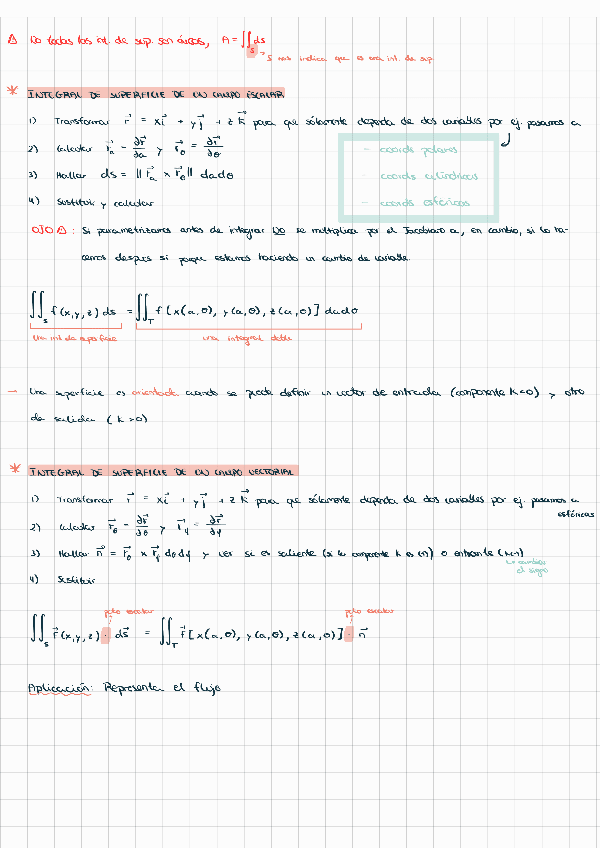 ⚠ No todas las int. de sup. son áreas, A = ∬_S ds
→ S nos indica que es una int. de sup.
* INTEGRAL DE SUPERFICIE DE UN CAMPO ESCALAR
1) Transformar r⃗ = xi⃗ + yj⃗ + zk⃗ para que sólamente dependa de dos variables por ej. pasamos a
2) Calcular r⃗a = ∂r⃗/∂a y r⃗θ = ∂r⃗/∂θ
- coords polares
3) Hallar ds = ||r⃗a x r⃗θ|| dadθ
- coords cilíndricas
4) Sustituir y calcular
- coords esféricas
OJO ⚠: Si parametrizamos antes de integrar NO se multiplica por el Jacobiano a, en cambio, si lo ha-
cemos después si porque estamos haciendo un cambio de variable.
∬_S f(x,y,z) ds = ∬_T f[x(a,θ), y(a,θ), z(a,θ)] dadθ
Una int. de superficie
una integral doble
→ Una superficie es orientada cuando se puede definir un vector de entrada (componente k<0) y otro
de salida (k>0)
* INTEGRAL DE SUPERFICIE DE UN CAMPO VECTORIAL
1) Transformar r⃗ = xi⃗ + yj⃗ + zk⃗ para que sólamente dependa de dos variables por ej. pasamos a
esféricas
2) Calcular r⃗θ = ∂r⃗/∂θ y r⃗φ = ∂r⃗/∂φ
3) Hallar n⃗ = r⃗θ x r⃗φ dθdφ y ver si es saliente (si la componente k es (+)) o entrante (k(-))
cambiar
el signo
4) Sustituir
pdto escalar
pdto escalar
∬_S f⃗(x,y,z) · ds⃗ = ∬_T f⃗[x(a,θ), y(a,θ), z(a,θ)] · n⃗
Aplicación: Representa el flujo